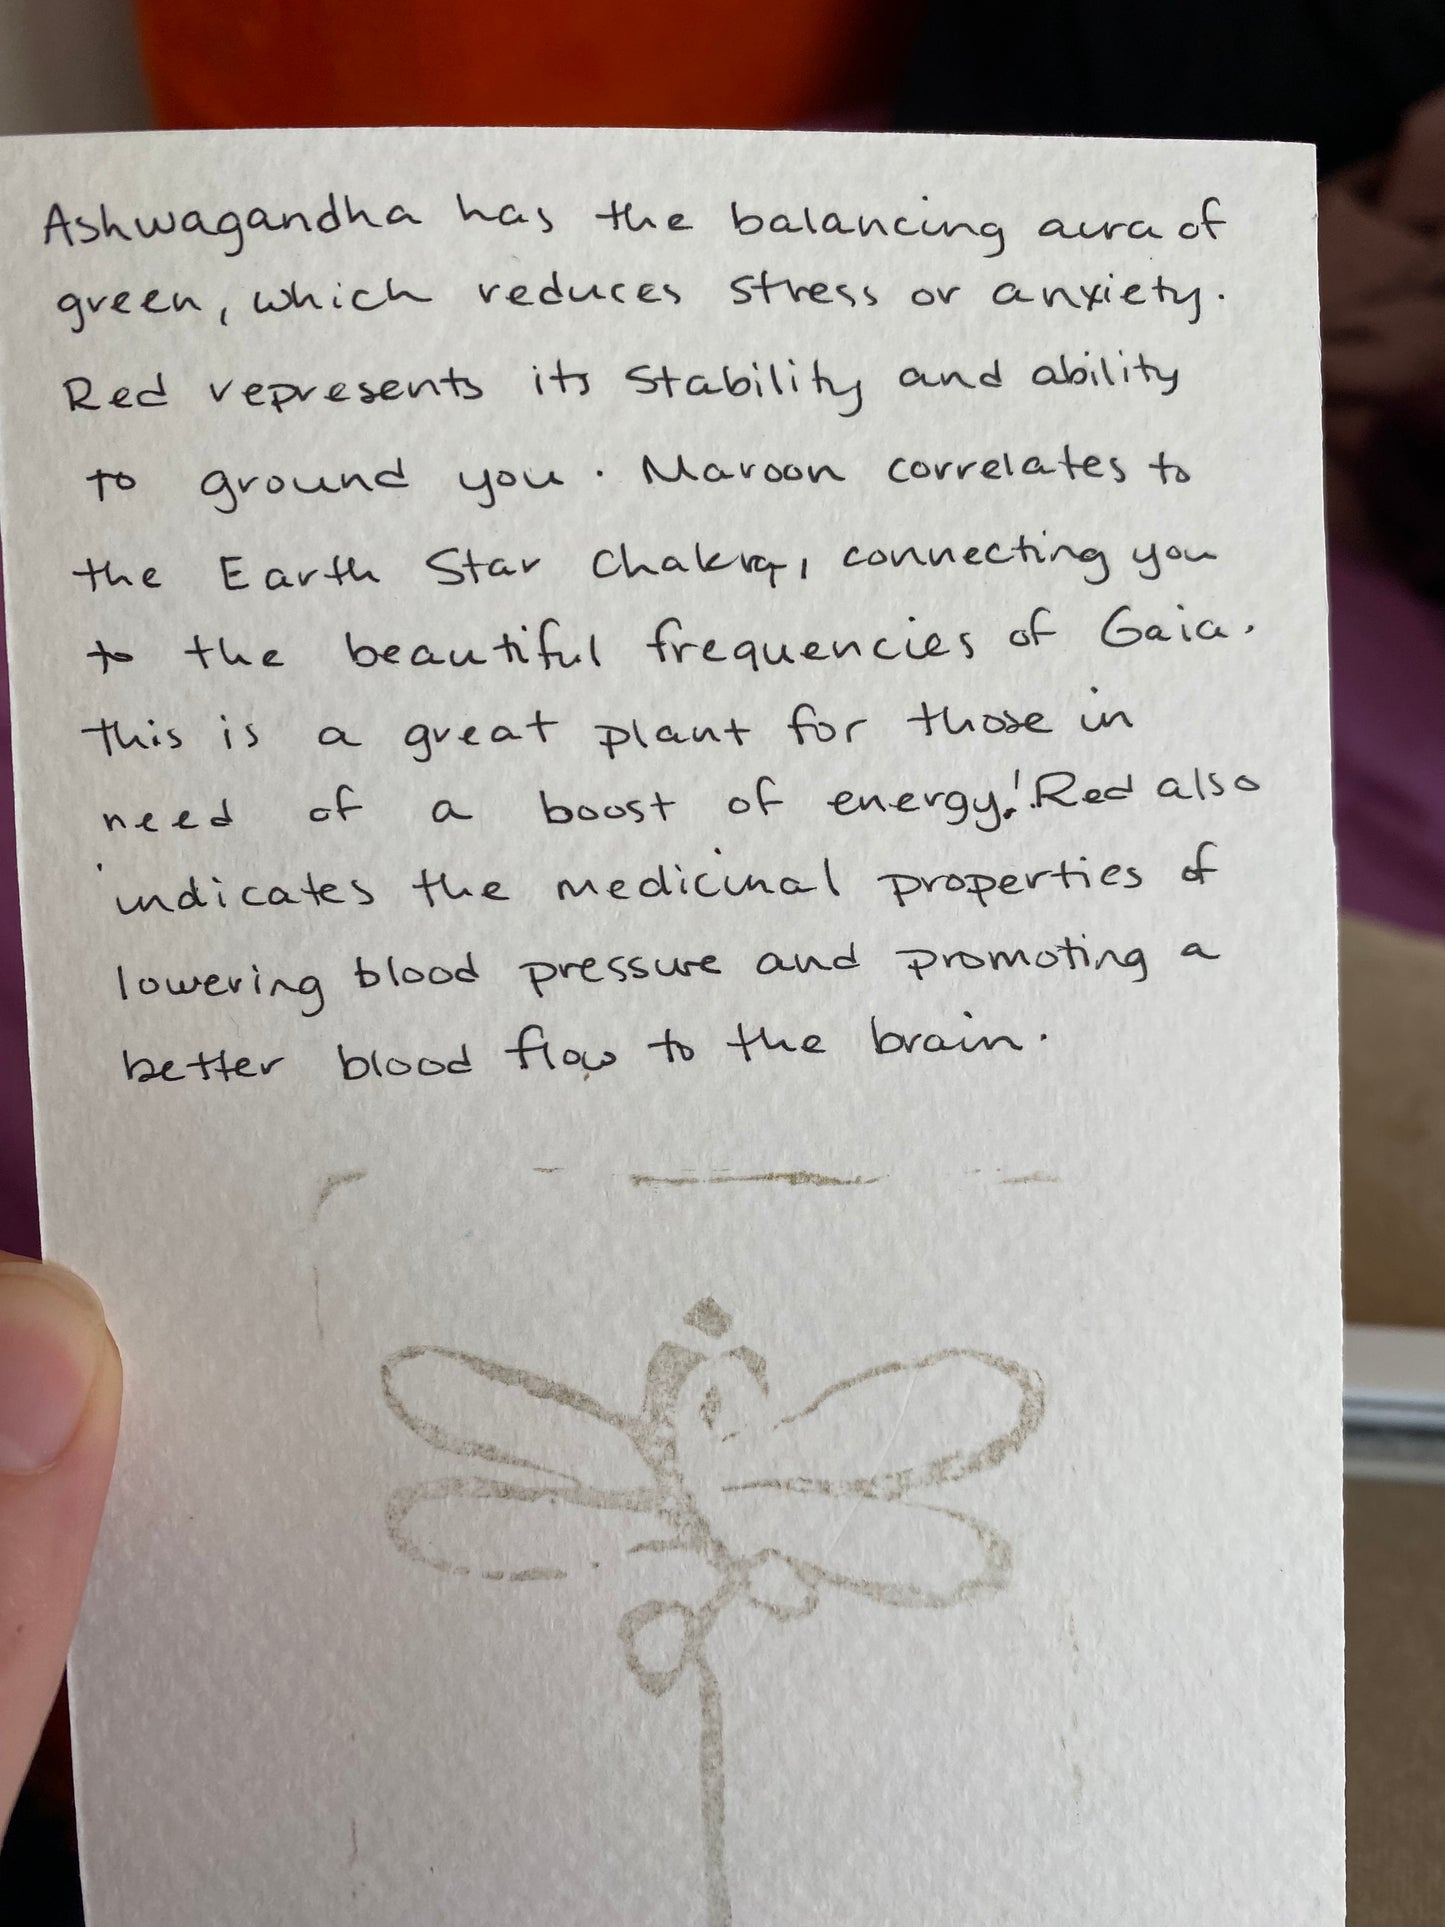 Ashwagandha has the balancing aura of
green, which reduces stress or anxiety.
Red represents its stability and ability
to ground you. Maroon correlates to
the Earth Star Chakra, connecting you
to the beautiful frequencies of Gaia.
this is a great plant for those in
need of a boost of energy! Red also
indicates the medicinal properties of
lowering blood pressure and promoting a
better blood flow to the brain.